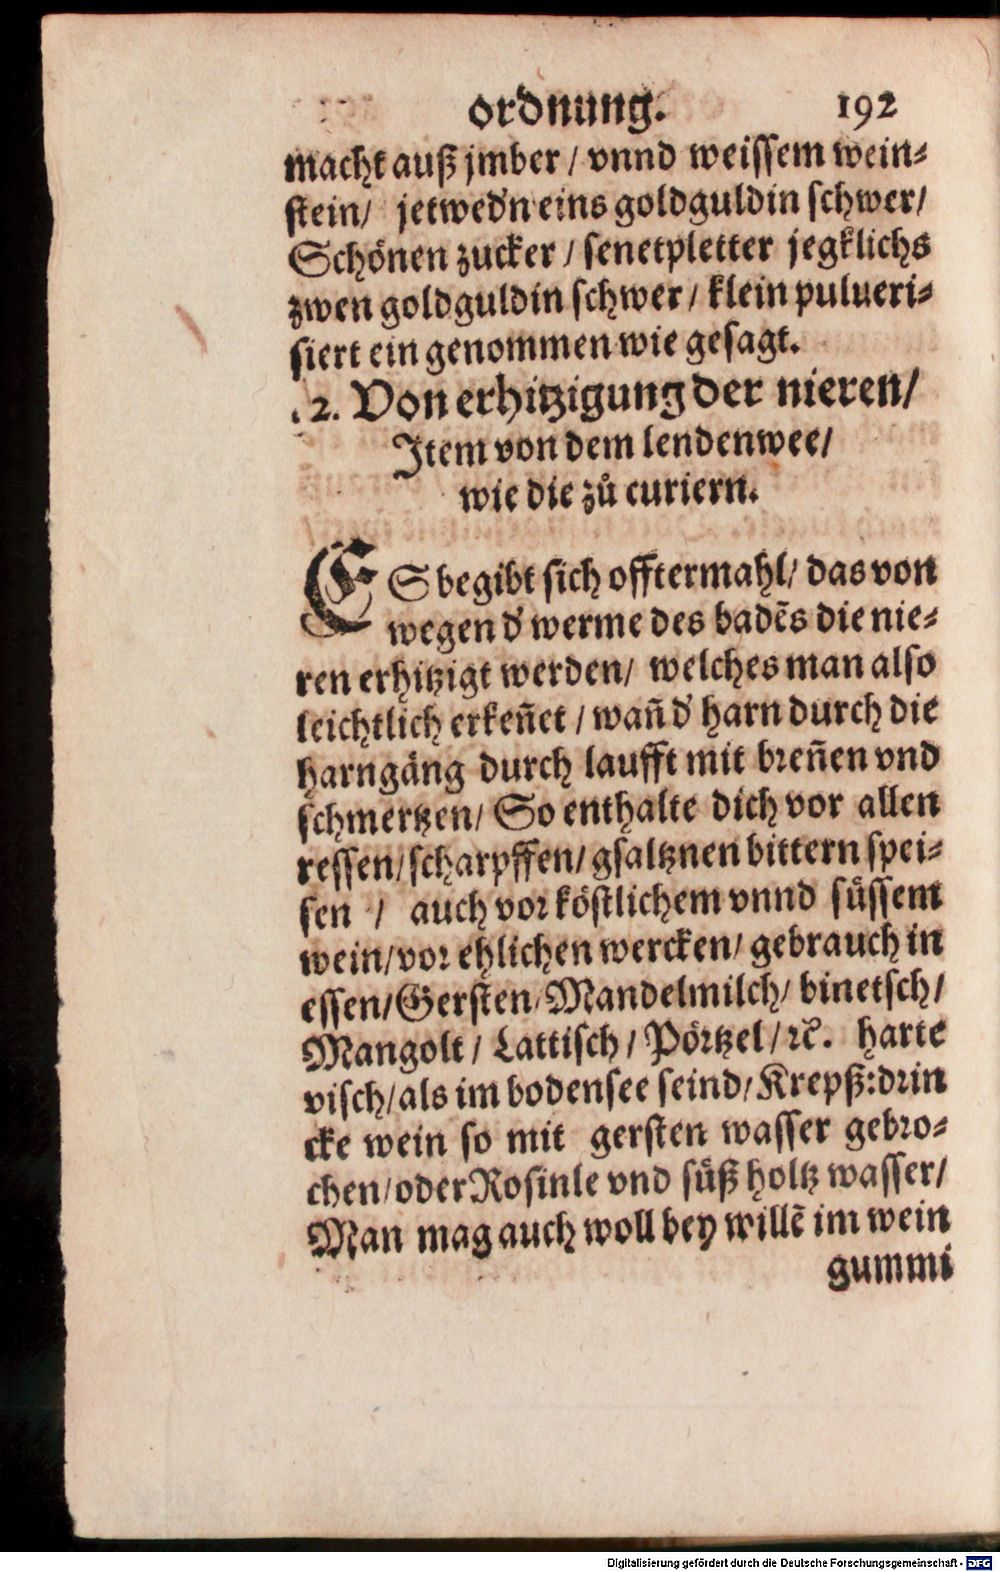 ordnung. 192
macht auß jmber / vnnd weissem wein-
stein/ jetwed'n eins goldguldin schwer/
Schönen zucker / senetpletter jegklichs
zwen goldguldin schwer / klein pulueri-
siert ein genommen wie gesagt.
.2. Von erhitzigung der nieren/
Item von dem lendenwee/
wie die zů curiern.
ES begibt sich offtermahl/ das von
wegen d' werme des badẽs die nie-
ren erhitzigt werden/ welches man also
leichtlich erkeñet / wañ d' harn durch die
harngäng durch laufft mit breñen vnd
schmertzen/ So enthalte dich vor allen
ressen/scharpffen/gsaltznen bittern spei-
sen / auch vor köstlichem vnnd süssem
wein/vor ehlichen wercken/ gebrauch in
essen/Gersten/Mandelmilch/ binetsch/
Mangolt / Lattisch / Pörtzel / ꝛc̃. harte
visch/als im bodensee seind/Krepß:drin
cke wein so mit gersten wasser gebro-
chen/oder Rosinle vnd süß holtz wasser/
Man mag auch woll bey willẽ im wein
gummi
Digitalisierung gefördert durch die Deutsche Forschungsgemeinschaft - DFG